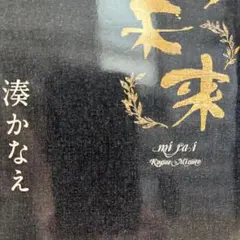 未来
mirai
Kanae Minato
湊かなえ